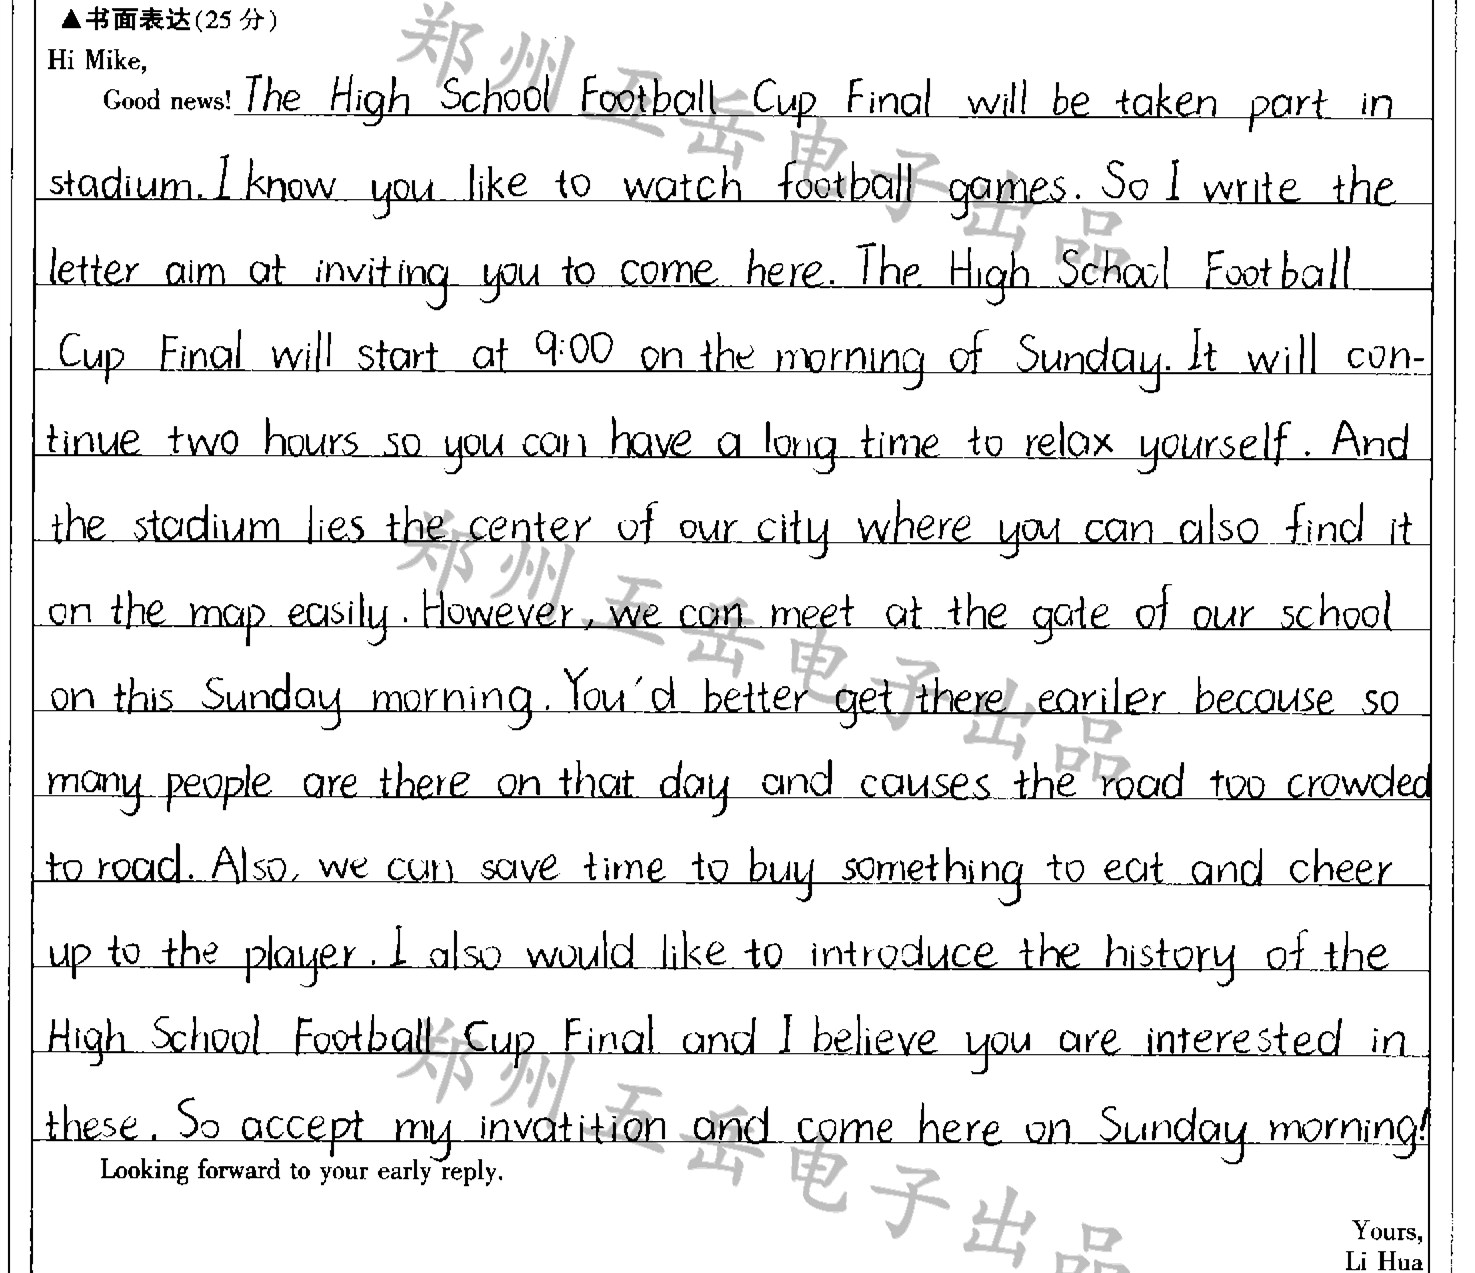 ▲书面表达(25 分)
Hi Mike,
Good news! The High School Football Cup Final will be taken part in
stadium. I know you like to watch football games. So I write the
letter aim at inviting you to come here. The High School Football
Cup Final will start at 9:00 on the morning of Sunday. It will con-
tinue two hours so you can have a long time to relax yourself. And
the stadium lies the center of our city where you can also find it
on the map easily. However, we can meet at the gate of our school
on this Sunday morning. You'd better get there eariler because so
many people are there on that day and causes the road too crowded
to road. Also, we can save time to buy something to eat and cheer
up to the player. I also would like to introduce the history of the
High School Football Cup Final and I believe you are interested in
these. So accept my invatition and come here on Sunday morning!
Looking forward to your early reply.
Yours,
Li Hua
郑州五岳电子出品
郑州五岳电子出品
郑州五岳电子出品